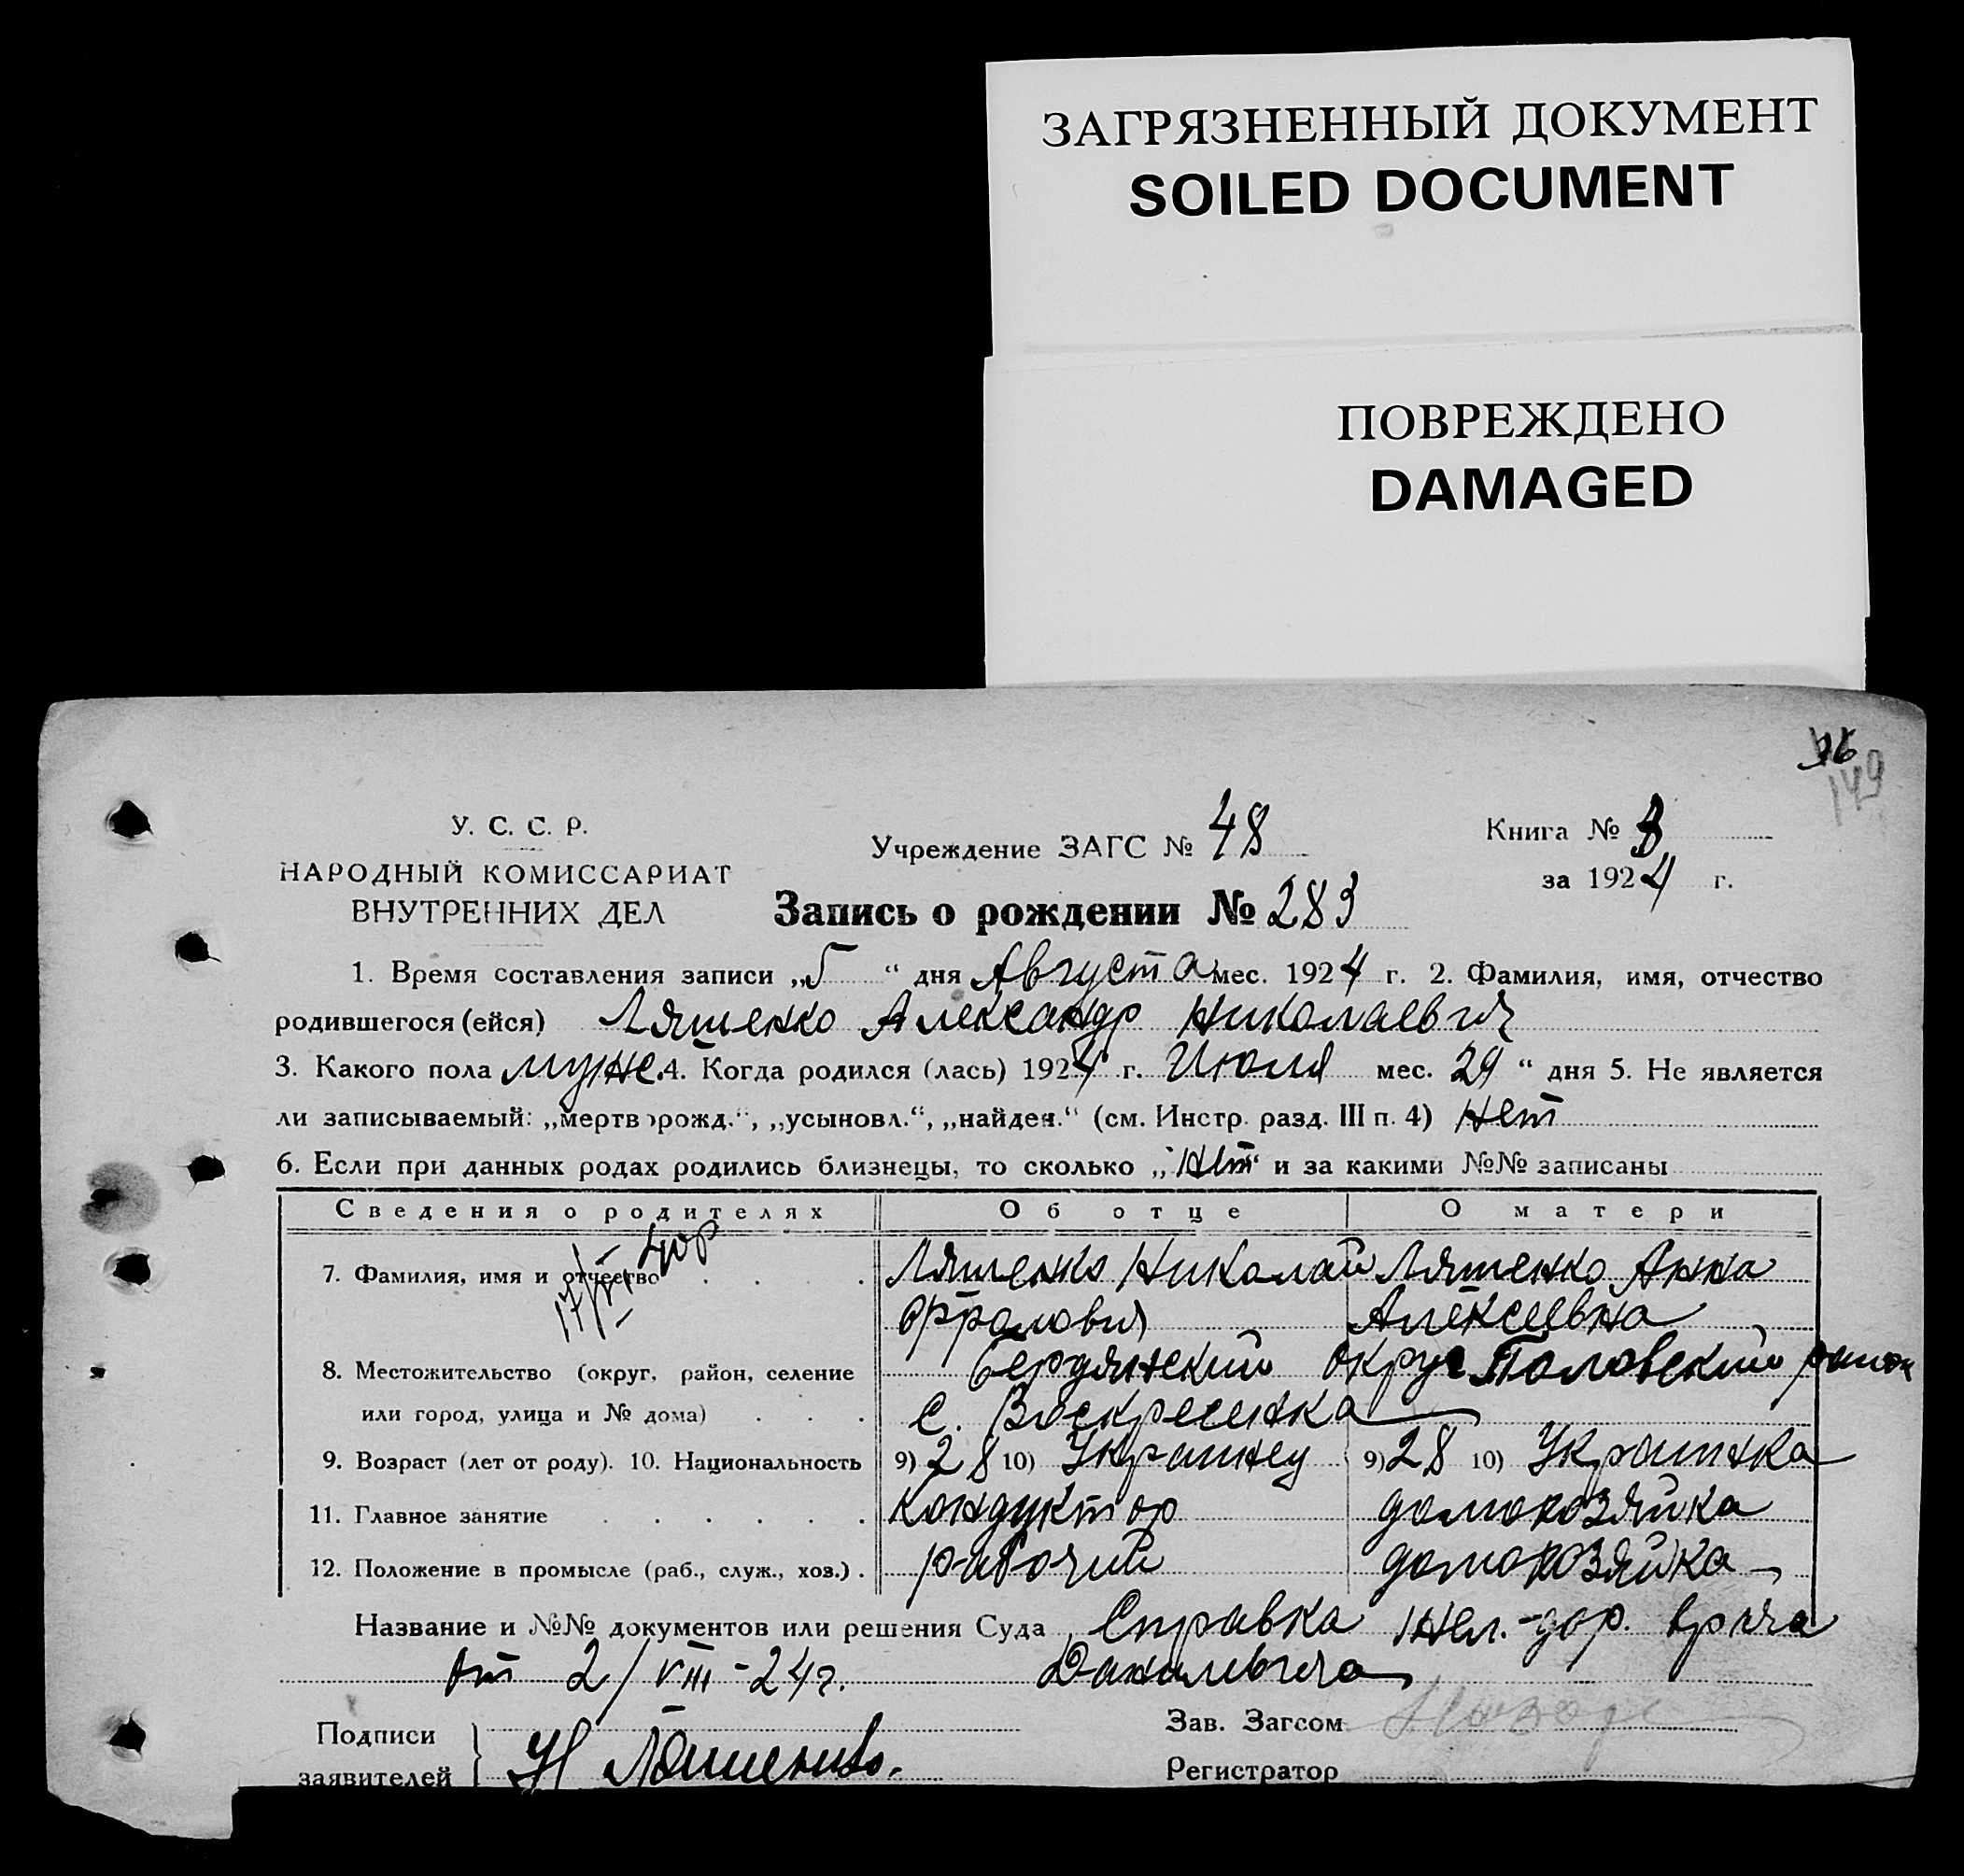 ЗАГРЯЗНЕННЫЙ ДОКУМЕНТ
SOILED DOCUMENT
ПОВРЕЖДЕНО
DAMAGED
149
У. С. С. Р.
НАРОДНЫЙ КОМИССАРИАТ
ВНУТРЕННИХ ДЕЛ
Учреждение ЗАГС № 48
Книга № 3
за 1924 г.
Запись о рождении № 283
1. Время составления записи „5“ дня Августа мес. 1924 г. 2. Фамилия, имя, отчество
родившегося (ейся) Ляшенко Александр Николаевич
3. Какого пола муже. 4. Когда родился (лась) 1924 г. Июля мес. 29 “ дня 5. Не является
ли записываемый: „мертворожд.“, „усыновл.“, „найден.“ (см. Инстр. разд. III п. 4) нет
6. Если при данных родах родились близнецы, то сколько „нет“ и за какими №№ записаны
Сведения о родителях Об отце О матери
7. Фамилия, имя и отчество Ляшенко Николай Ляшенко Анна
Фролович Алексеевна
8. Местожительство (округ, район, селение Бердянский округ Пологовский район
или город, улица и № дома) с. Воскресенка
9. Возраст (лет от роду). 10. Национальность 9) 28 10) Украинец 9) 28 10) Украинка
11. Главное занятие кондуктор домохозяйка
12. Положение в промысле (раб., служ., хоз.) рабочий домохозяйка
Название и №№ документов или решения Суда Справка жел.-дор. врача
от 2/VIII-24г. Данилевича
Подписи
заявителей } Н Ляшенко.
Зав. Загсом
Регистратор